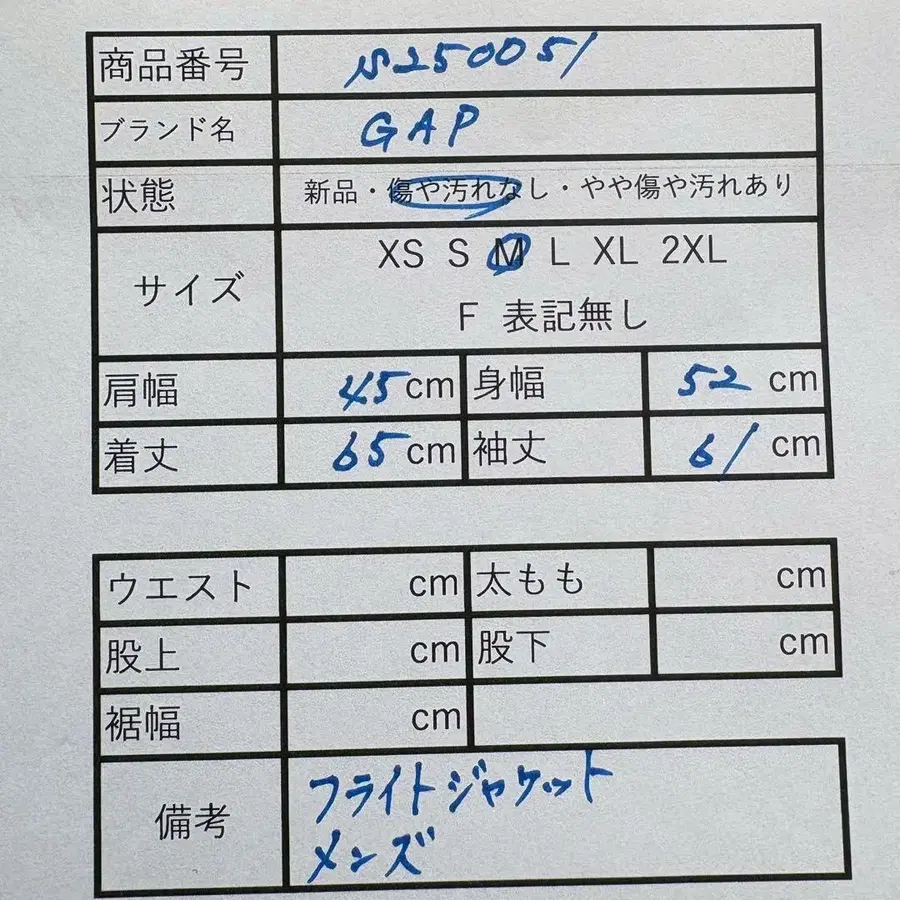 商品番号 IS250051
ブランド名 GAP
状態 新品・傷や汚れなし・やや傷や汚れあり
サイズ XS S M L XL 2XL
F 表記無し
肩幅 45cm 身幅 52 cm
着丈 65cm 袖丈 61 cm
ウエスト cm 太もも cm
股上 cm 股下 cm
裾幅 cm
備考 フライトジャケット
メンズ